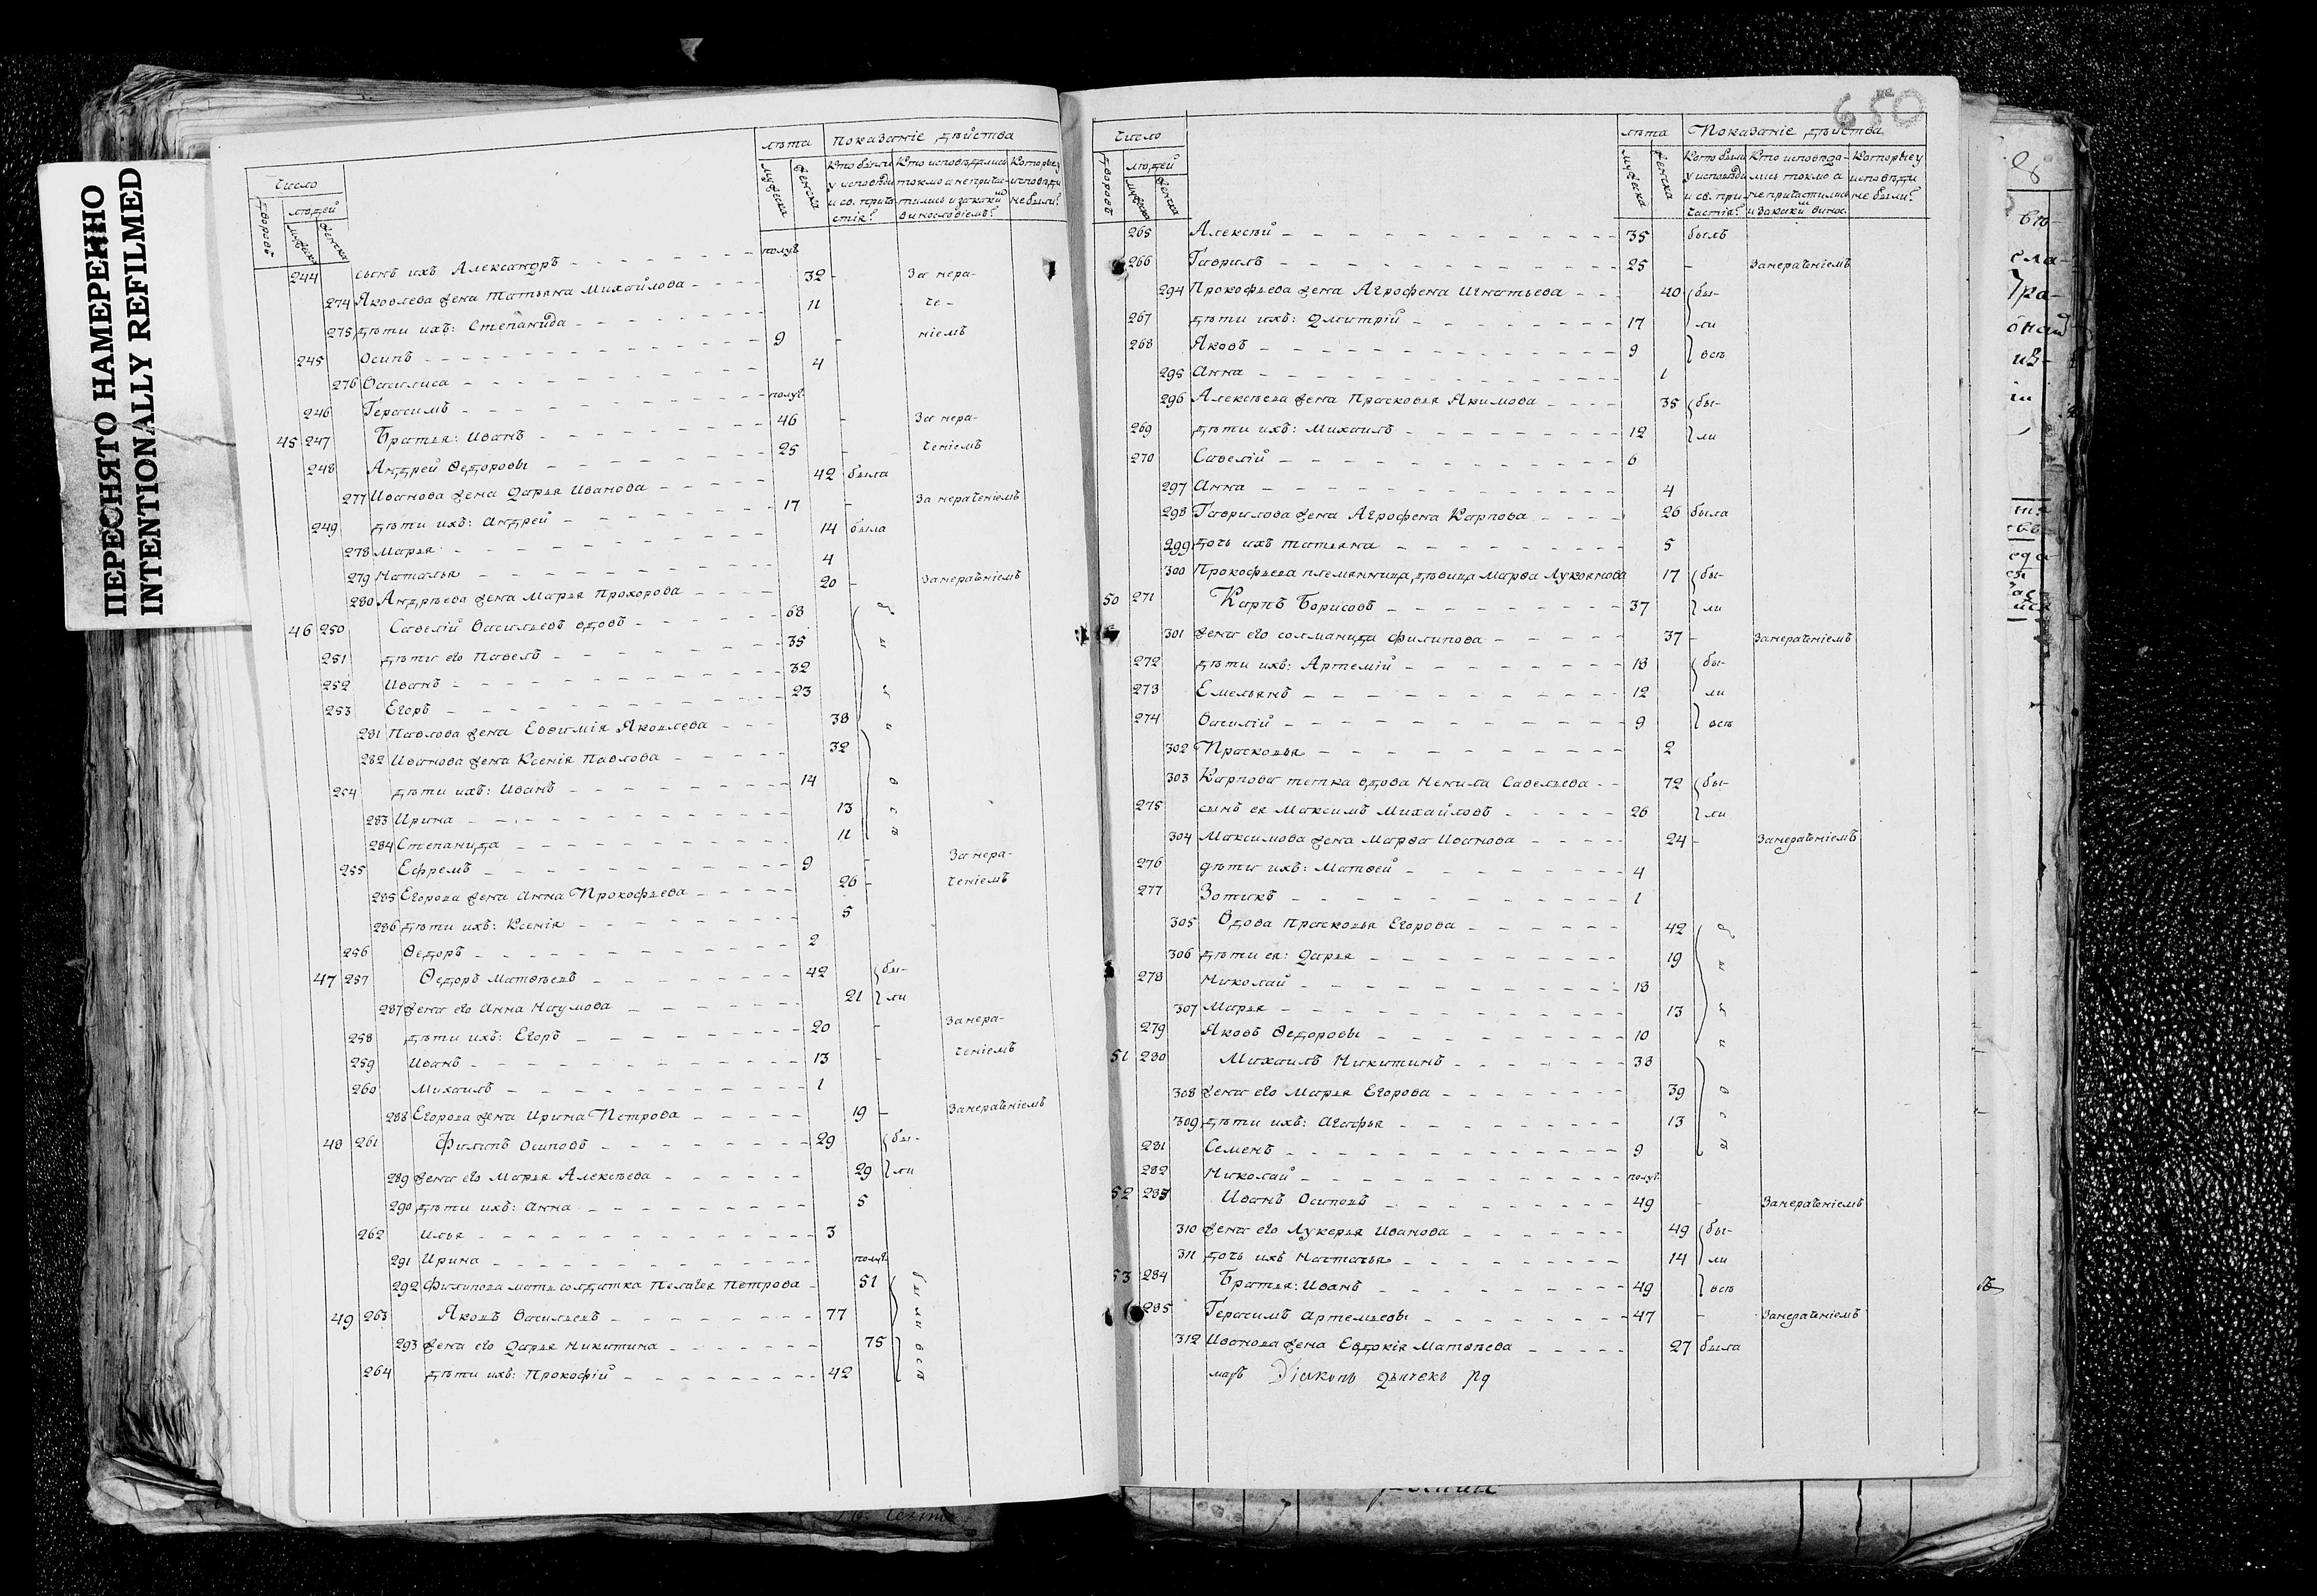 ПЕРЕСНЯТО НАМЕРЕННО
INTENTIONALLY REFILMED
Число
лѣта
показаніе дѣйства
дворовъ
людей
мужеска
женска
мужеска
женска
Кто были у исповѣди и св. причастія?
Кто исповѣдались токмо а не причастились и за какимъ винословіемъ?
Которые у исповѣди не были?
244 сынъ ихъ Александръ полуг.
274 Яковлева жена Татьяна Михайлова 32 - За нера-
275 дѣти ихъ: Степанида 11 - че-
245 Осипъ 9 - ніемъ
276 Василиса 4
246 Герасимъ полуг.
45 247 Братья: Иванъ 46 - За нера-
248 Андрей Ѳедоровы 25 - ченіемъ
277 Иванова жена Дарья Иванова 42 была
249 дѣти ихъ: Андрей 17 - За нераченіемъ
278 Марья 14 была
279 Наталья 4
280 Андрѣева жена Марья Прохорова 20 - Занераченіемъ
46 250 Савелій Васильевъ вдовъ 68
251 дѣти его Павелъ 35
252 Иванъ 32
253 Егоръ 23
281 Павлова жена Евѳимія Яковлева 38
282 Иванова жена Ксенія Павлова 32
254 дѣти ихъ: Иванъ 14
283 Ирина 13
284 Степанида 11
255 Ефремъ 9 - За нера-
285 Егорова жена Анна Прокофьева 26 - ченіемъ
286 дѣти ихъ: Ксенія 5
256 Ѳедоръ 2
47 257 Ѳедоръ Матвѣевъ 42 бы-
287 жена его Анна Наумова 21 ли
258 дѣти ихъ: Егоръ 20 - Занера-
259 Иванъ 13 - ченіемъ
260 Михаилъ 1
288 Егорова жена Ирина Петрова 19 - Занераченіемъ
48 261 Филипъ Осиповъ 29 бы-
289 жена его Марья Алексѣева 29 ли
290 дѣти ихъ: Анна 5
262 Илья 3
291 Ирина полуг.
292 Филипова мать солдатка Пелагея Петрова 51 были
49 263 Яковъ Васильевъ 77
293 жена его Дарья Никитина 75 всѣ
264 дѣти ихъ: Прокофій 42
650
Число
лѣта
Показаніе дѣйства
дворовъ
людей
мужеска
женска
мужеска
женска
Кто были у исповѣди и св. причастія?
Кто исповѣдались токмо а не причастились и за какимъ винос.
Которые у исповѣди не были?
265 Алексѣй 35 былъ
266 Гаврилъ 25 - Занераченіемъ
294 Прокофьева жена Агрофена Игнатьева 40 бы-
267 дѣти ихъ: Дмитрій 17 ли
268 Яковъ 9 всѣ
295 Анна 1
296 Алексѣева жена Прасковья Якимова 35 бы-
269 дѣти ихъ: Михаилъ 12 ли
270 Савелій 6
297 Анна 4
298 Гаврилова жена Агрофена Карпова 26 была
299 дочь ихъ Татьяна 5
300 Прокофьева племянница, дѣвица Марѳа Лукоянова 17 бы-
50 271 Карпъ Борисовъ 37 ли
301 жена его солманида Филипова 37 - Занераченіемъ
272 дѣти ихъ: Артемій 18 бы-
273 Емельянъ 12 ли
274 Василій 9 всѣ
302 Прасковья 2
303 Карпова тетка вдова Ненила Савельева 72 бы-
275 сынъ ея Максимъ Михайловъ 26 ли
304 Максимова жена Марѳа Иванова 24 - Занераченіемъ
276 дѣти ихъ: Матвей 4
277 Зотикъ 1
305 Вдова Прасковья Егорова 42
306 дѣти ея: Дарья 19
278 Николай 18
307 Марья 13
279 Яковъ Ѳедоровы 10
51 280 Михаилъ Никитинъ 38
308 жена его Марья Егорова 39
309 дѣти ихъ: Агафья 13
281 Семенъ 9
282 Николай полуг.
52 283 Иванъ Осиповъ 49 - Занераченіемъ
310 жена его Лукерья Иванова 49 бы-
311 дочь ихъ Настасья 14 ли
53 284 Братья: Иванъ 49 всѣ
285 Герасимъ Артемьевы 47 - Занераченіемъ
312 Иванова жена Евдокія Матвѣева 27 была
Діаконъ